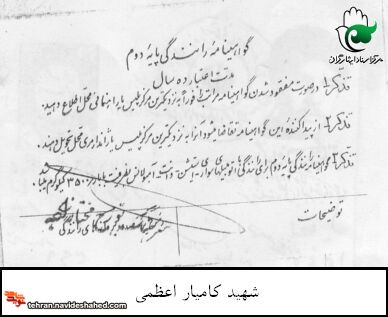 گواهینامه رانندگی پایه دوم
مدت اعتبار ده سال
تذکر۱ـ درصورت مفقود شدن گواهینامه مراتب را فوراً به نزدیکترین مرکز پلیس یا راهنمائی محل اطلاع دهید.
تذکر۲ـ از پیداکننده این گواهینامه تقاضا میشود آنرا به نزدیکترین مرکز پلیس یا ژاندارمری محل تحویل دهند.
تذکر۳ـ گواهینامه رانندگی پایه دوم برای رانندگی اتومبیلهای سواری، استیشن، وانت، آمبولانس بظرفیت با بار ۳۵۰۰ کیلوگرم
توضیحات
مرکز اسناد ایثارگران
شهید کامیار اعظمی
tehran.navideshahed.com